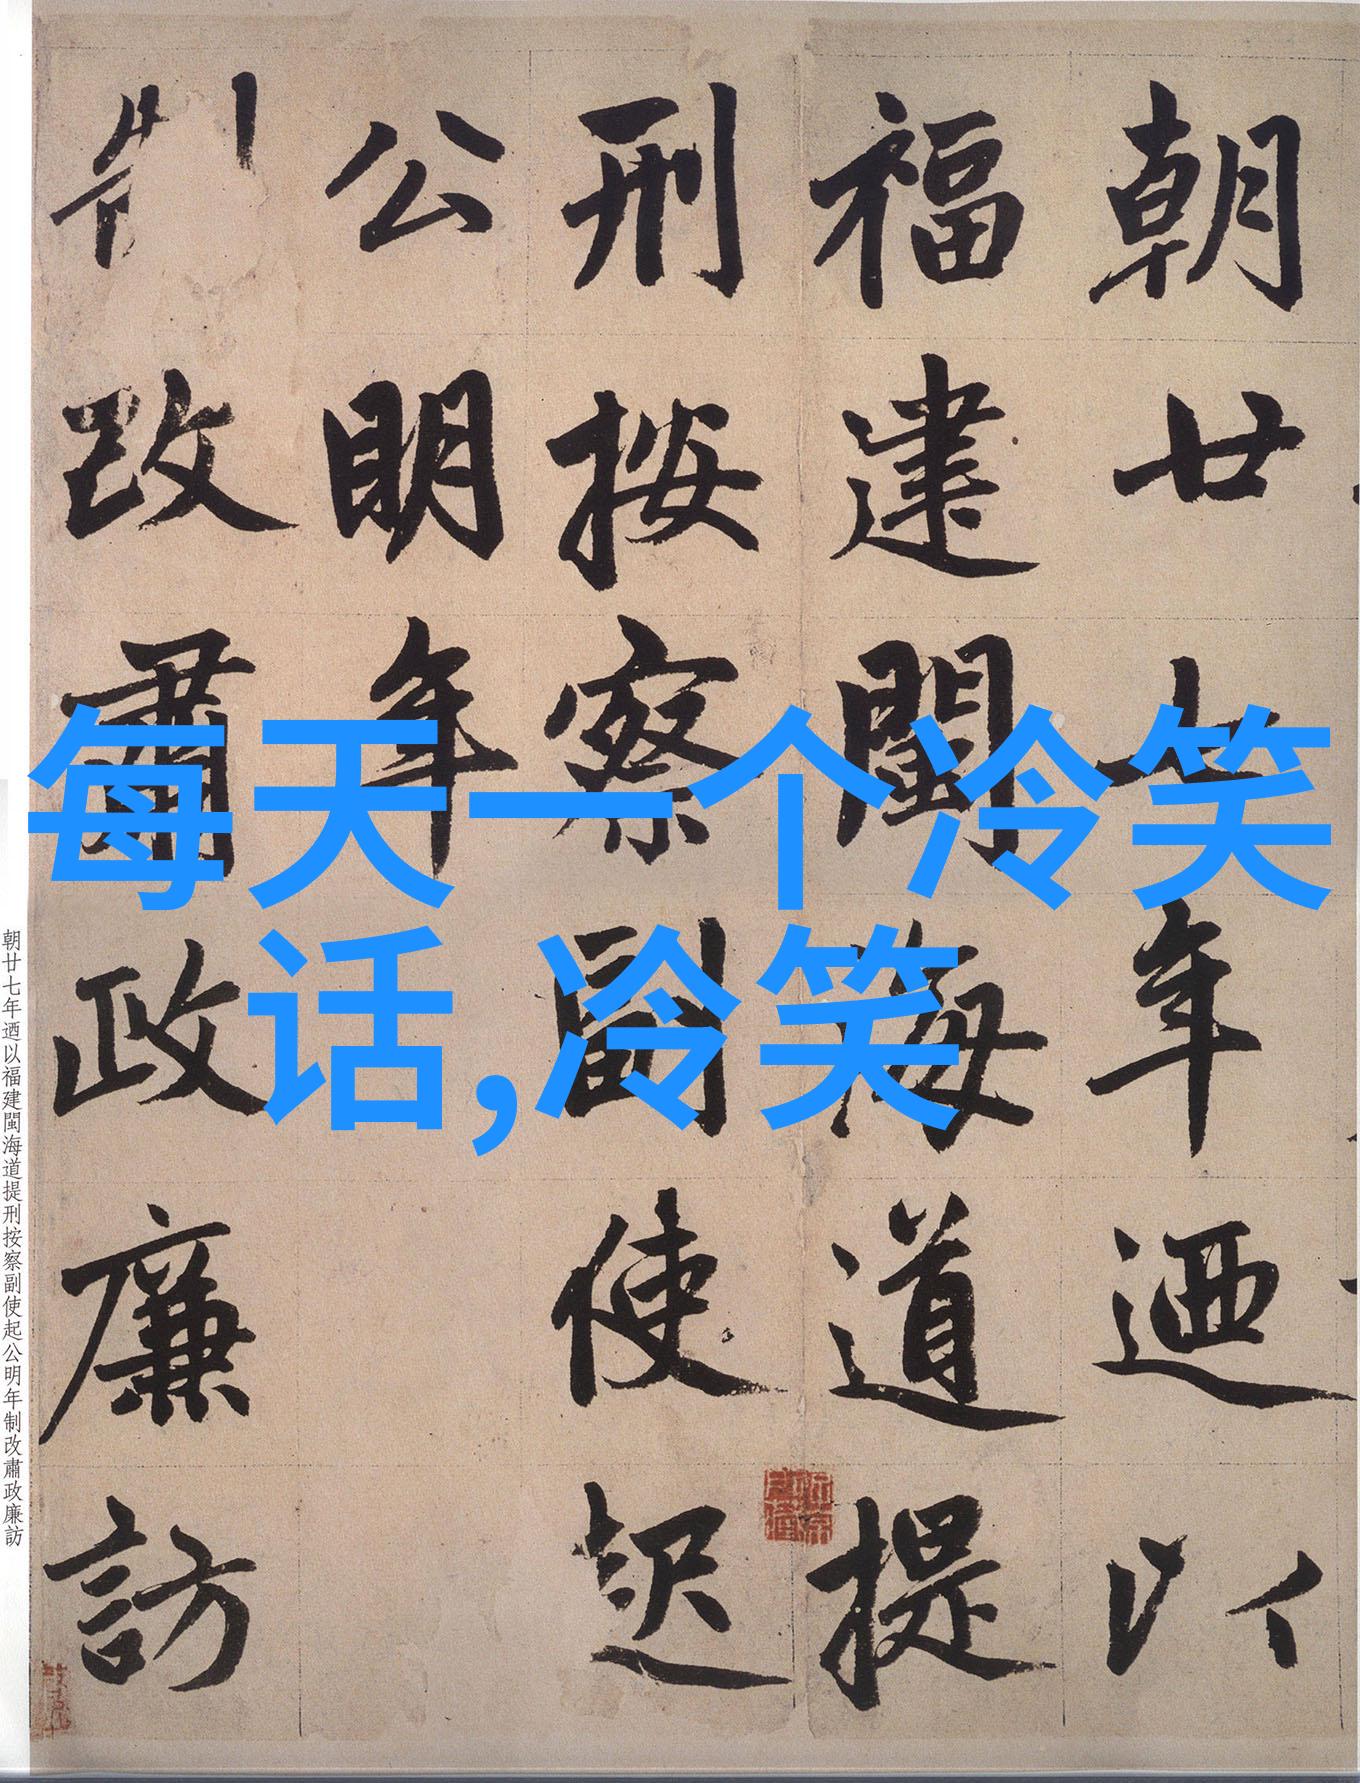 朝廿七年迺以
福建閩海道提
刑按察副使起
公明年
制改肅政廉訪
每天一个冷笑
话,冷笑
朝廿七年迺以福建閩海道提刑按察副使起公明年制改肅政廉訪